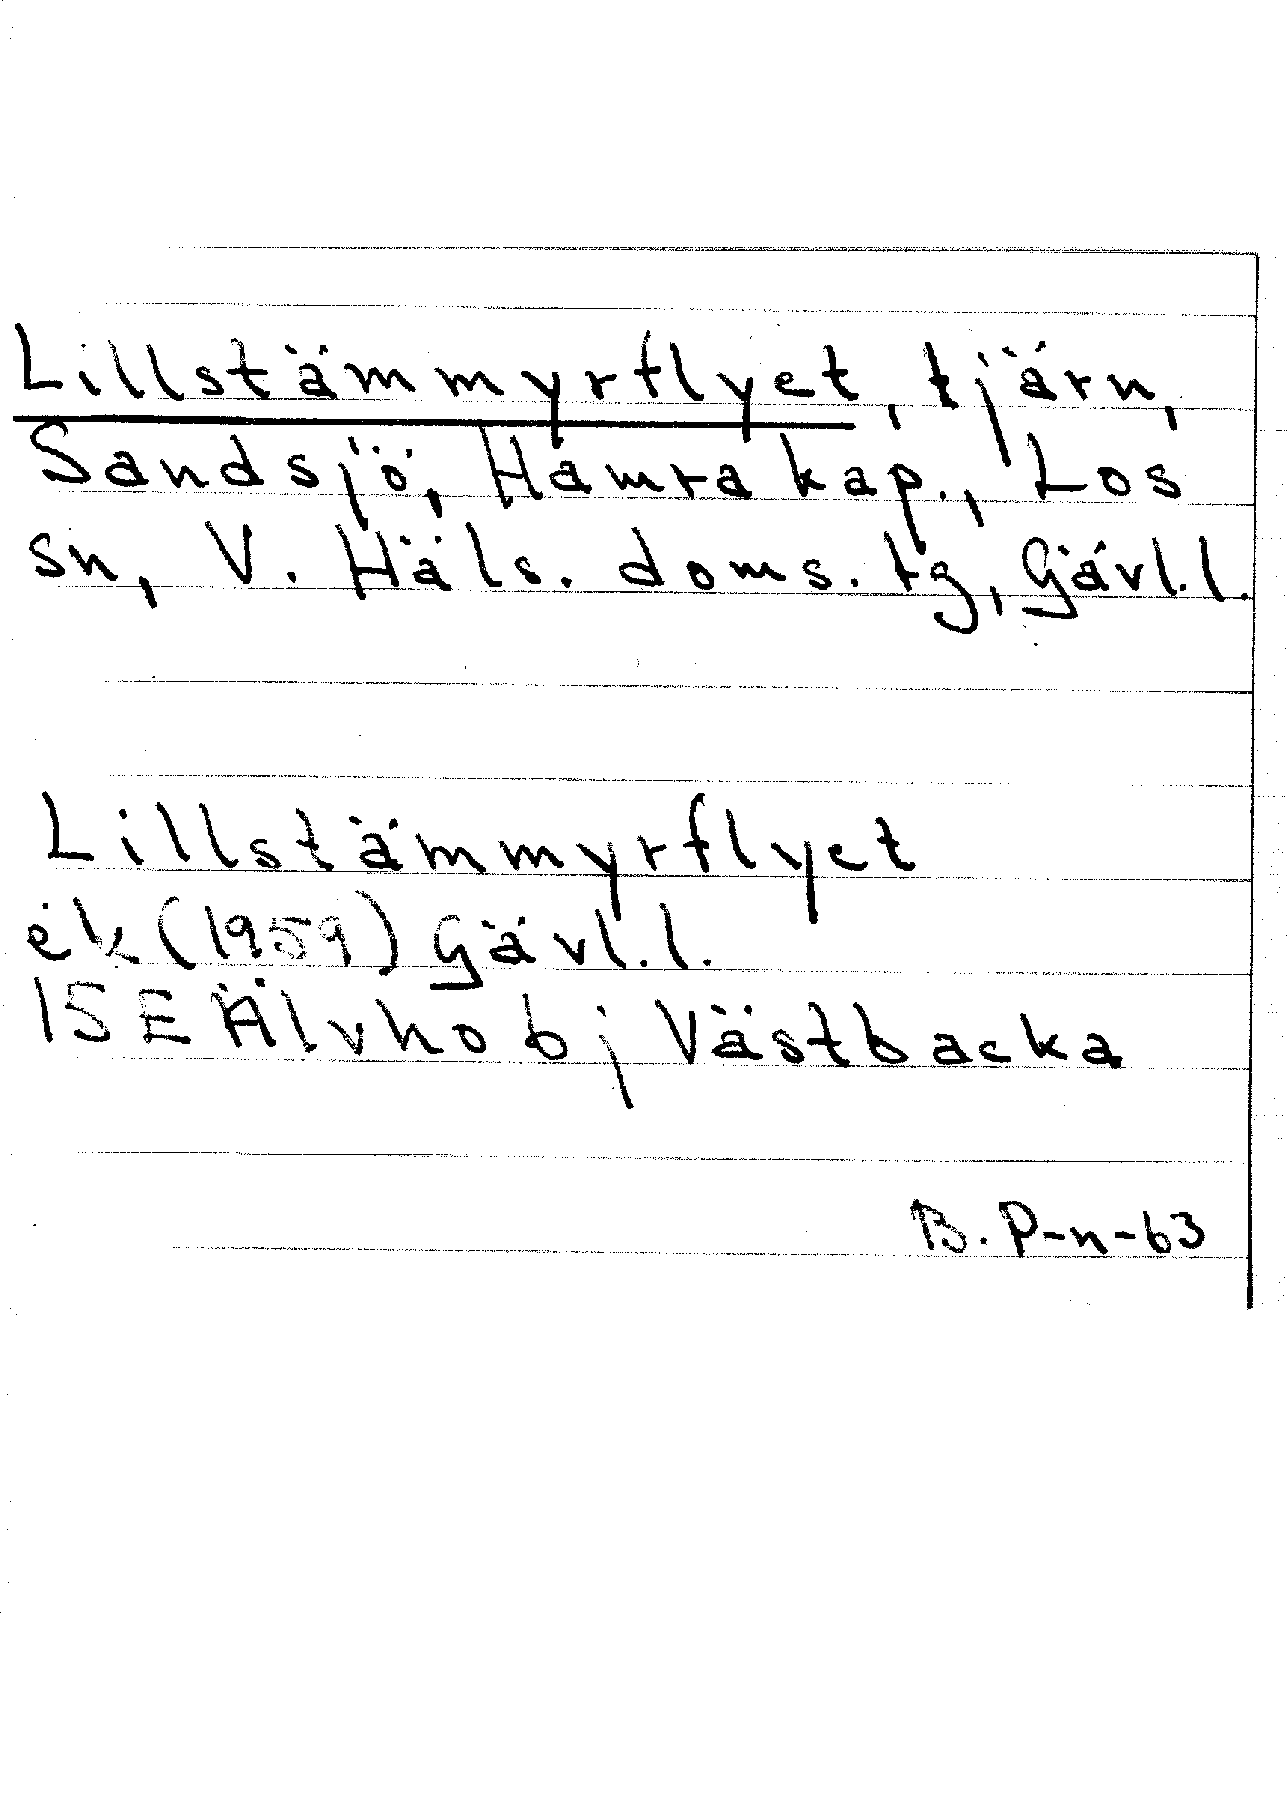 Lillstämmyrflyet, tjärn,
Sandsjö, Hamra kap., Los
sn, V. Häls. doms. tg, Gävl.l.
Lillstämmyrflyet
ek (1959) Gävl.l.
15E Älvho bj Västbacka
B. P-n-63